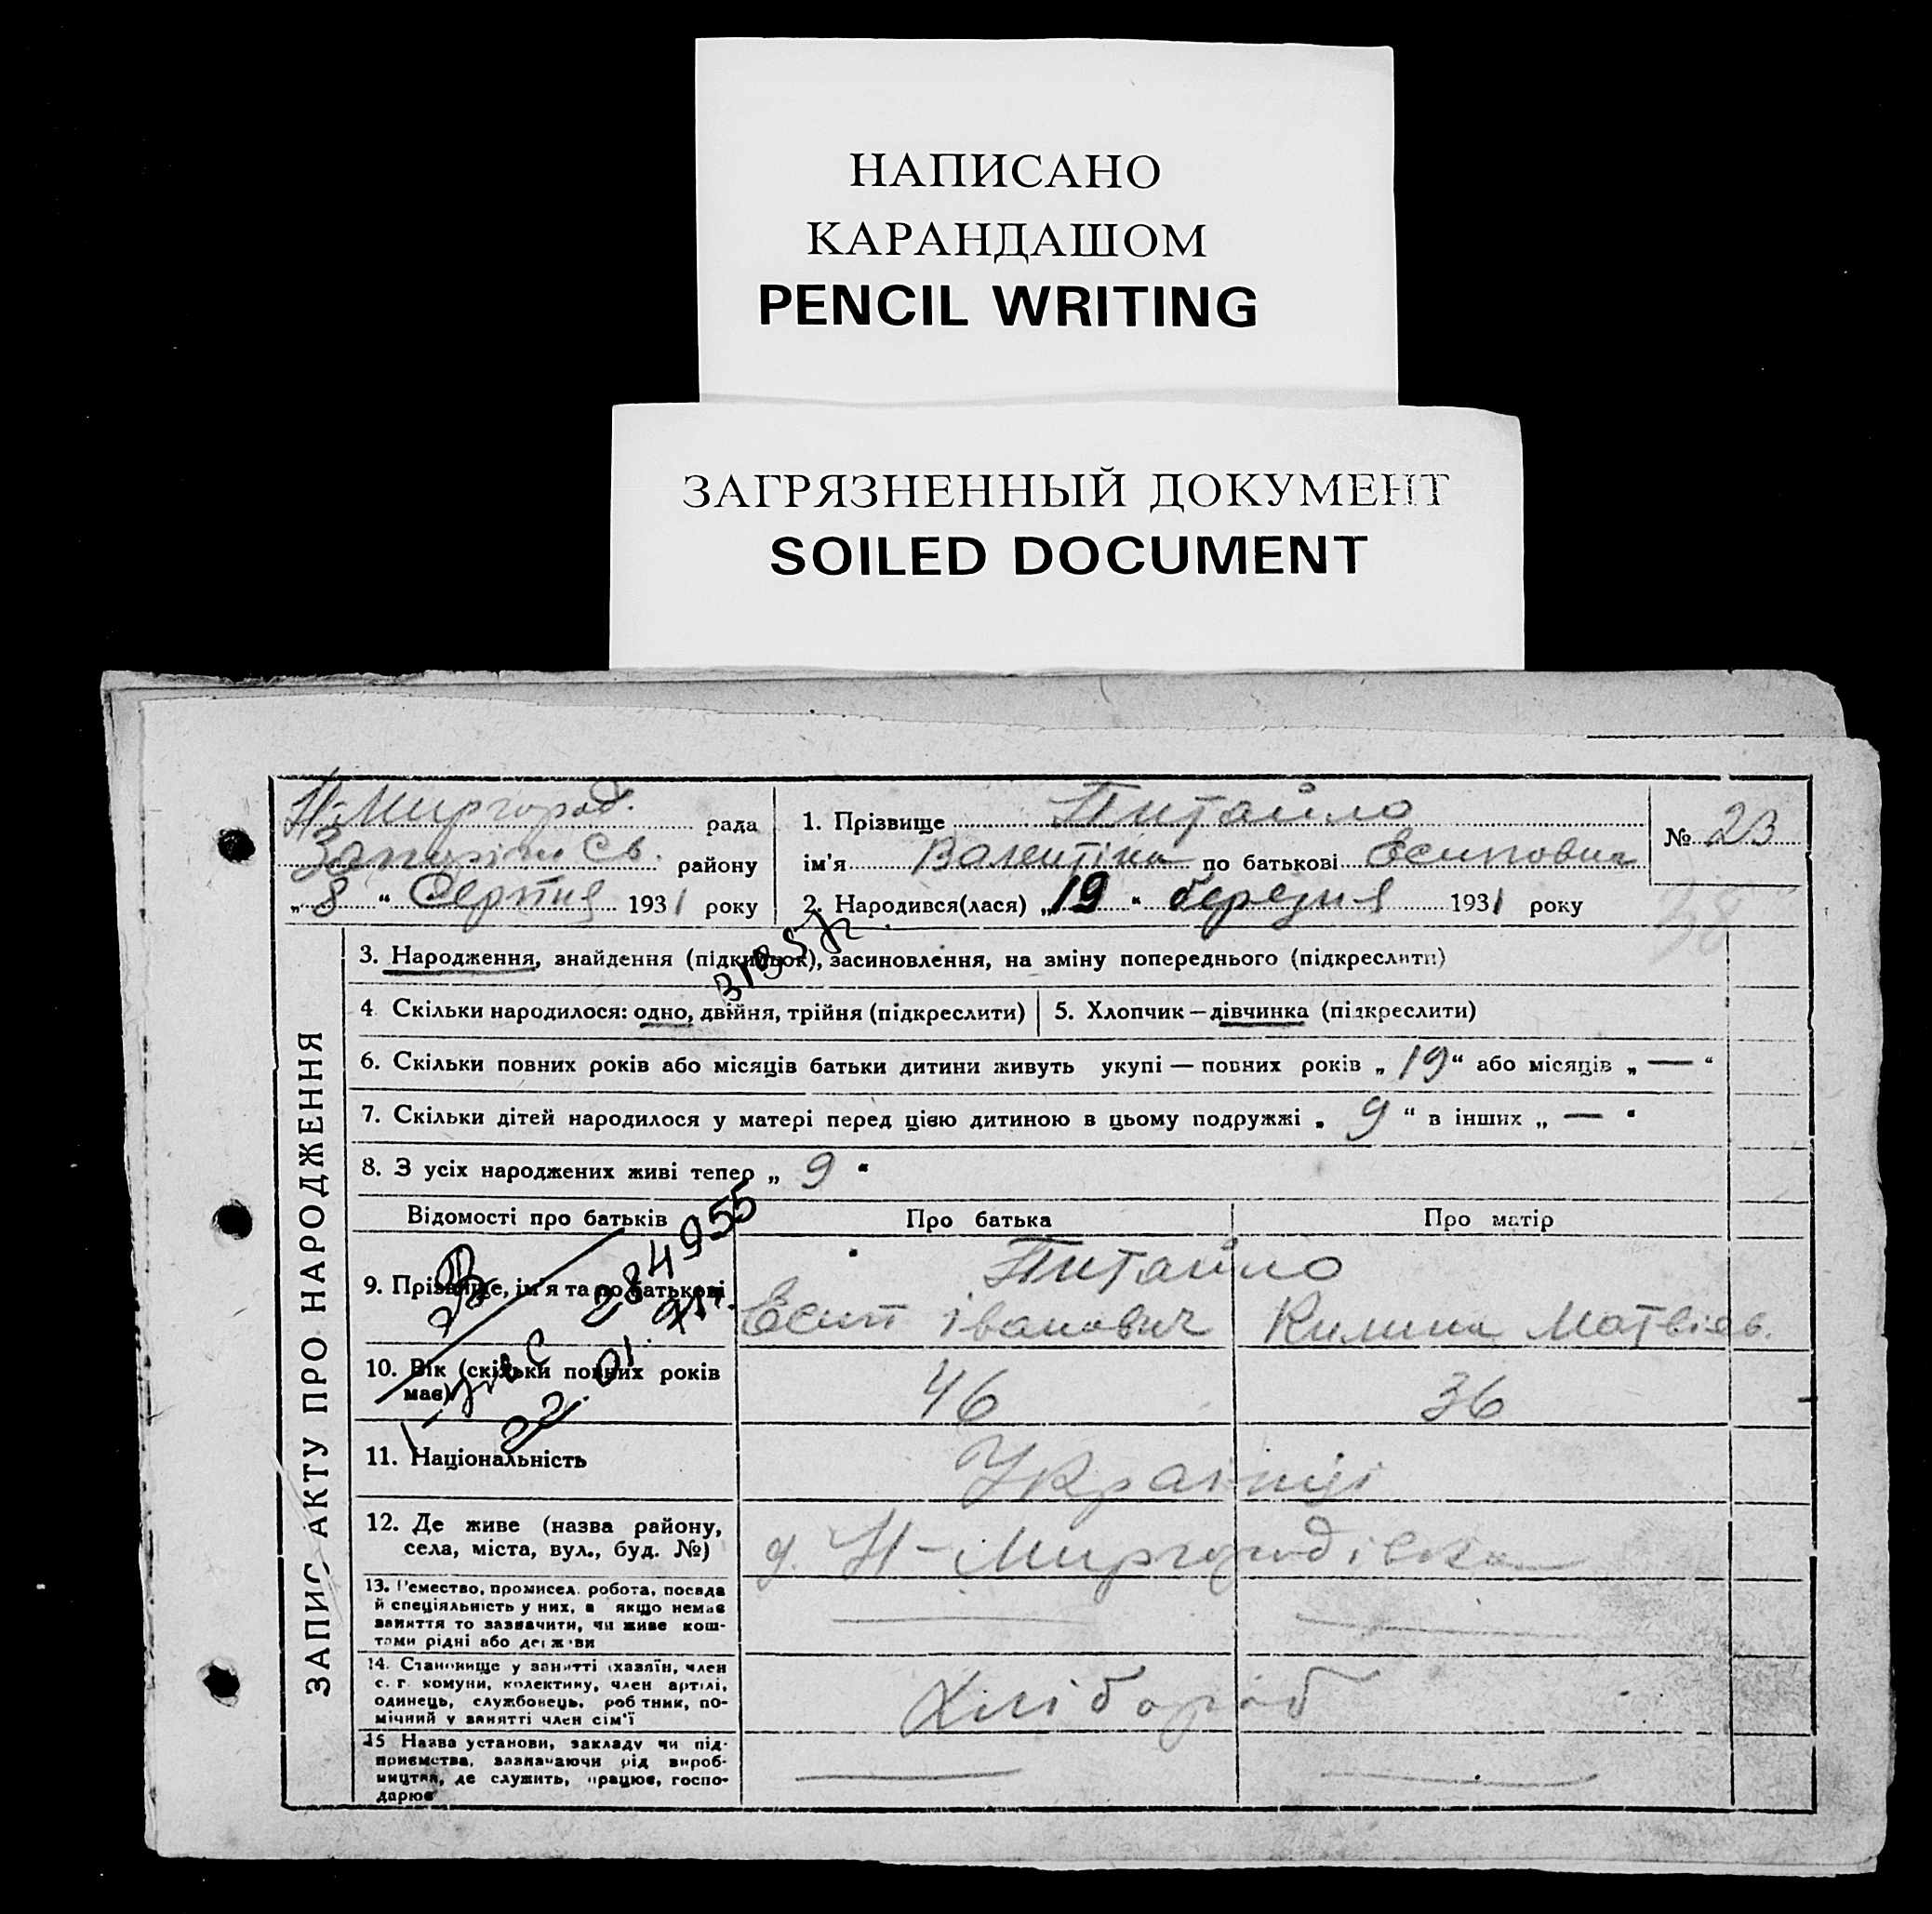 НАПИСАНО
КАРАНДАШОМ
PENCIL WRITING
ЗАГРЯЗНЕННЫЙ ДОКУМЕНТ
SOILED DOCUMENT
Н-Миргород. рада
району
„ 8 “ Серпня 1931 року
1. Прізвище Питайло
ім'я Валентіна по батькові Есиповна
2. Народився(лася) „ 19 “ березня 1931 року
№ 23
38
ЗАПИС АКТУ ПРО НАРОДЖЕННЯ
3. Народження, знайдення (підкидьок), засиновлення, на зміну попереднього (підкреслити)
4. Скільки народилося: одно, двійня, трійня (підкреслити)
5. Хлопчик — дівчинка (підкреслити)
6. Скільки повних років або місяців батьки дитини живуть укупі — повних років „ 19 “ або місяців „ — “
7. Скільки дітей народилося у матері перед цією дитиною в цьому подружжі „ 9 “ в інших „ — “
8. З усіх народжених живі тепер „ 9 “
Відомості про батьків
Про батька
Про матір
9. Прізвище, ім'я та по батькові
Питайло
Есип Іванович
Килина Матвієв.
284955
10. Вік (скільки повних років
має)
46
36
11. Національність
Українці
12. Де живе (назва району,
села, міста, вул., буд. №)
Н-Миргородівка
13. Ремество, промисел, робота, посада
й спеціяльність у них, а якщо немає
заняття то зазначити, чи живе кош-
тами рідні або держави
14. Становище у занятті (хазяїн, член
с. г. комуни, колективу, член артілі,
одинець, службовець, робітник, по-
мічний у занятті член сім'ї
Хлібороб
15 Назва установи, закладу чи під-
приємства, зазначаючи рід вироб-
ництва, де служить, працює, госпо-
дарює